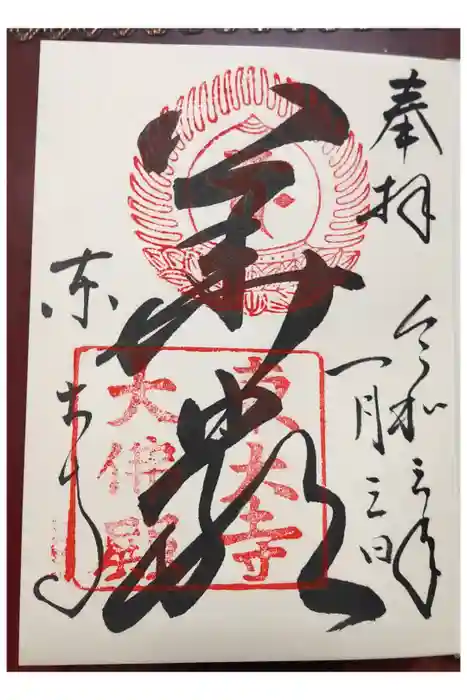 奉拝
令和三年
一月三日
華嚴
東大寺
大佛殿
東大寺